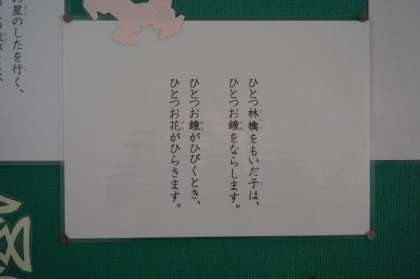 ひとつ林檎をもいだ子は、
ひとつお鐘をならします。
ひとつお鐘がひびくとき、
ひとつお花がひらきます。
星のしたを行く、